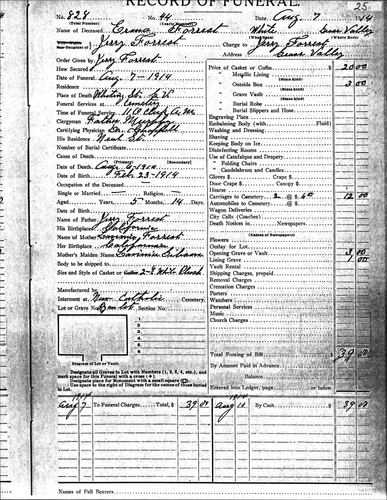 25
RECORD OF FUNERAL.
No. 828 No. 44 Date Aug. 7 1914
(Total Number) (Yearly Number)
Name of Deceased Forrest White
Jerry Forrest Charge to Jerry Forrest
Order Given by Jerry Forrest Address Valley
How Secured
Date of Funeral Aug 7-1914
Residence
Place of Death
Funeral Services at Cemetery
Time of Funeral Service
Clergyman Father
Certifying Physician
His Residence
Number of Burial Certificate
Cause of Death
(Primary) (Secondary)
Date of Death
Date of Birth Feb 23-1914
Occupation of the Deceased
Single or Married Religion
Aged Years, 5 Months, 14 Days.
Date of Birth
Name of Father Jerry Forrest
His Birthplace California
Name of Mother Forrest
Her Birthplace California
Mother's Maiden Name
Body to be shipped to
Size and Style of Casket or Coffin White
Manufactured by
Interment at New Catholic Cemetery.
Lot or Grave No. Section No.
1
2
3
4
5
6
Diagram of Lot or Vault.
Designate all Graves in Lot with Numbers (1, 2, 3, 4, etc.), and
mark space for this Funeral with a cross (+).
Designate place for Monument with a small square
Use space to the right of Diagram for the names of those buried
in Lot.
Price of Casket or Coffin 20 00
" Metallic Lining
(State kind)
" Outside Box 3 00
(State kind)
" Grave Vault
(State kind)
" Burial Robe
" Burial Slippers and Hose
Engraving Plate
Embalming Body (with Fluid)
Washing and Dressing
Shaving
Keeping Body on Ice
Disinfecting Rooms
Use of Catafalque and Drapery
" Folding Chairs
" Candelabrum and Candles
Gloves $ Crape $
Door Crape $
Hearse
Carriages to Cemetery 2 @ $ 6.00 12 00
Automobiles to Cemetery @ $
Wagon Deliveries
City Calls (Coaches)
Death Notices in Newspapers
(Names of Newspapers)
Flowers
Outlay for Lot
Opening Grave or Vault 3 00
Lining Grave 1 00
Vault Rental
Shipping Charges, prepaid
Removal Charges
Cremation Charges
Porters
Watchers
Personal Services
Music
Church Charges
Total Footing of Bill 39 00
By Amount Paid in Advance
Balance
Entered into Ledger, page or below.
1914 1914
Aug 7 To Funeral Charges, Total, $ 39 00 Aug 10 By Cash $ 39 00
Names of Pall Bearers